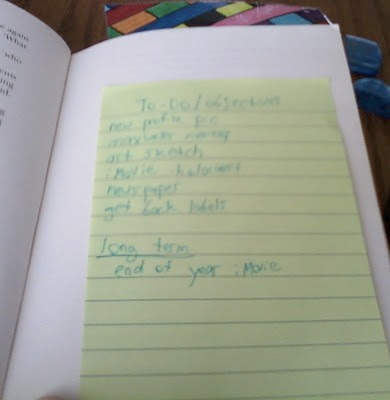 To-Do/objectives
new profile pic
money
art sketch
iMovie holocaust
newspaper
get back labels
long term
end of year iMovie